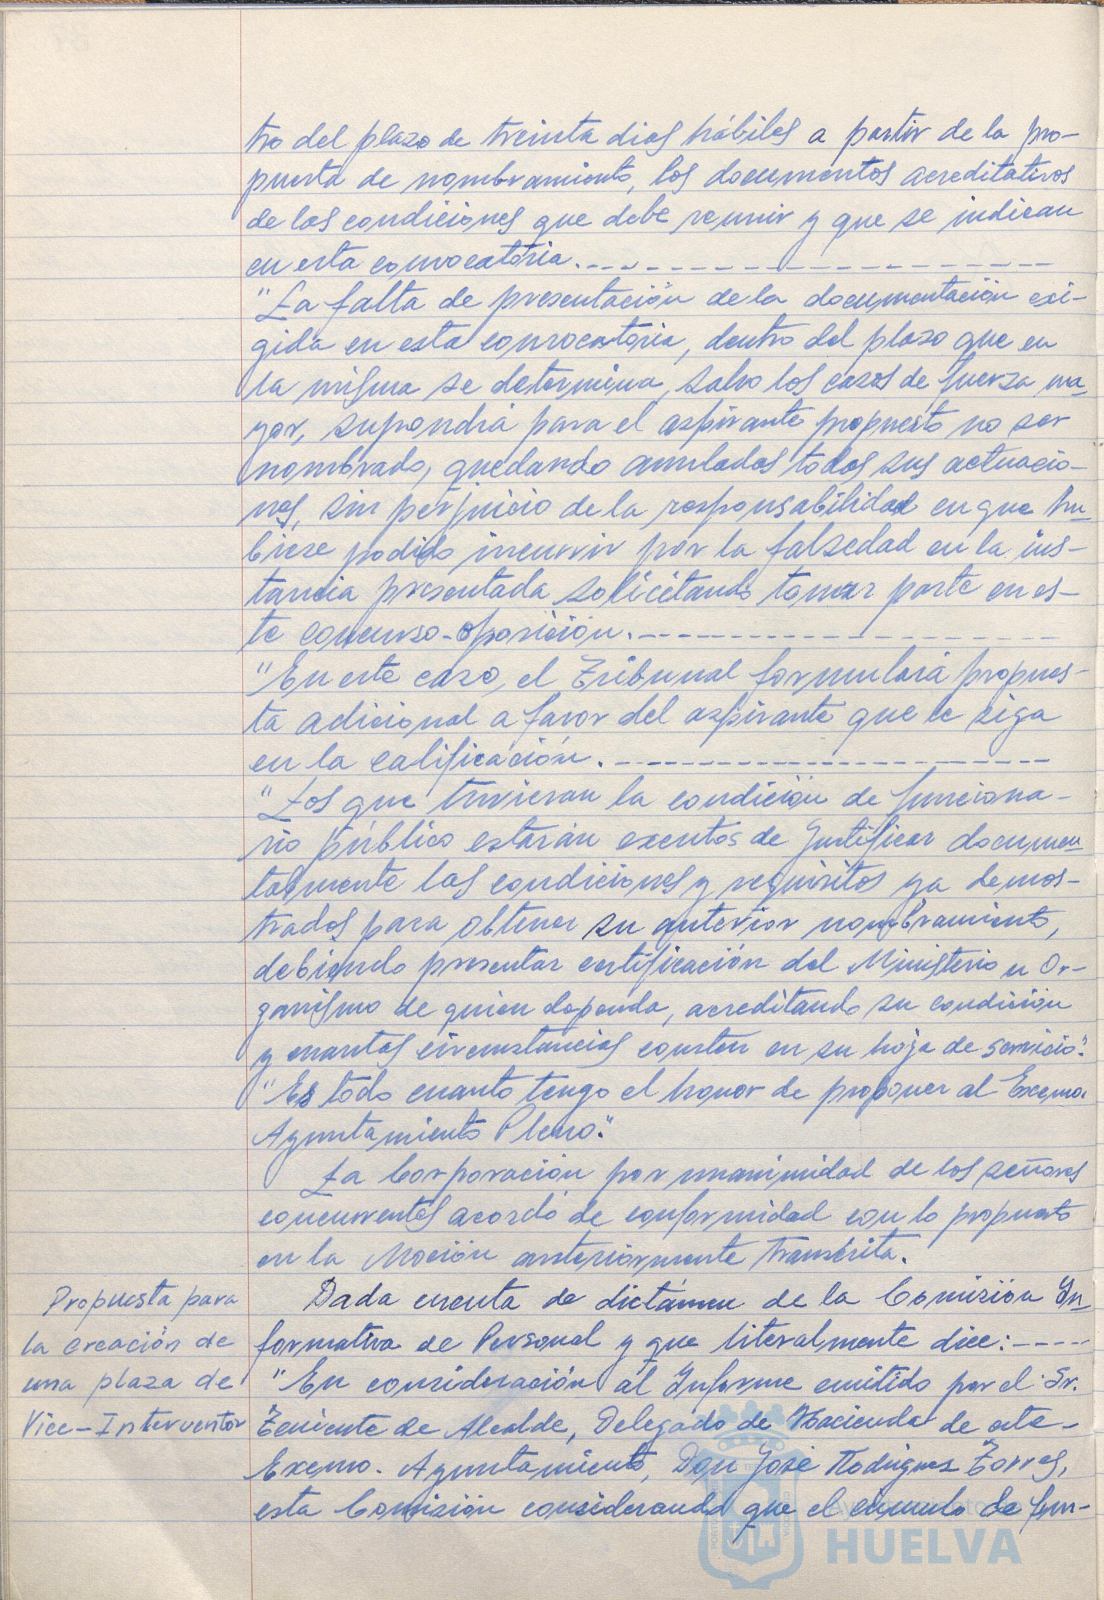 tro del plazo de treinta dias hábiles a partir de la pro-
puesta de nombramiento, los documentos acreditativos
de las condiciones que debe reunir y que se indican
en esta convocatoria.
"La falta de presentación de la documentación exi-
gida en esta convocatoria, dentro del plazo que en
la misma se determina, salvo los casos de fuerza ma-
yor, supondrá para el aspirante propuesto no ser
nombrado, quedando anuladas todas sus actuacio-
nes, sin perjuicio de la responsabilidad en que hu-
biese podido incurrir por la falsedad en la ins-
tancia presentada solicitando tomar parte en es-
te concurso-oposición.
"En este caso, el Tribunal formulará propues-
ta adicional a favor del aspirante que le siga
en la calificación.
"Los que tuvieran la condición de funciona-
rio público estarán exentos de justificar documen-
talmente las condiciones y requisitos ya demos-
trados para obtener su anterior nombramiento,
debiendo presentar certificación del Ministerio u Or-
ganismo de quien dependa, acreditando su condición
y cuantas circunstancias consten en su hoja de servicio".
"Es todo cuanto tengo el honor de proponer al Excmo.
Ayuntamiento Pleno".
La Corporación por unanimidad de los señores
concurrentes acordó de conformidad con lo propuesto
en la Moción anteriormente transcrita.
Propuesta para
la creación de
una plaza de
Vice-Interventor
Dada cuenta de dictámen de la Comisión In-
formativa de Personal y que literalmente dice:
"En consideración al Informe emitido por el Sr.
Teniente de Alcalde, Delegado de Hacienda de este
Excmo. Ayuntamiento, Don José Rodriguez Torres,
esta Comisión considerando que el cúmulo de fun-
HUELVA